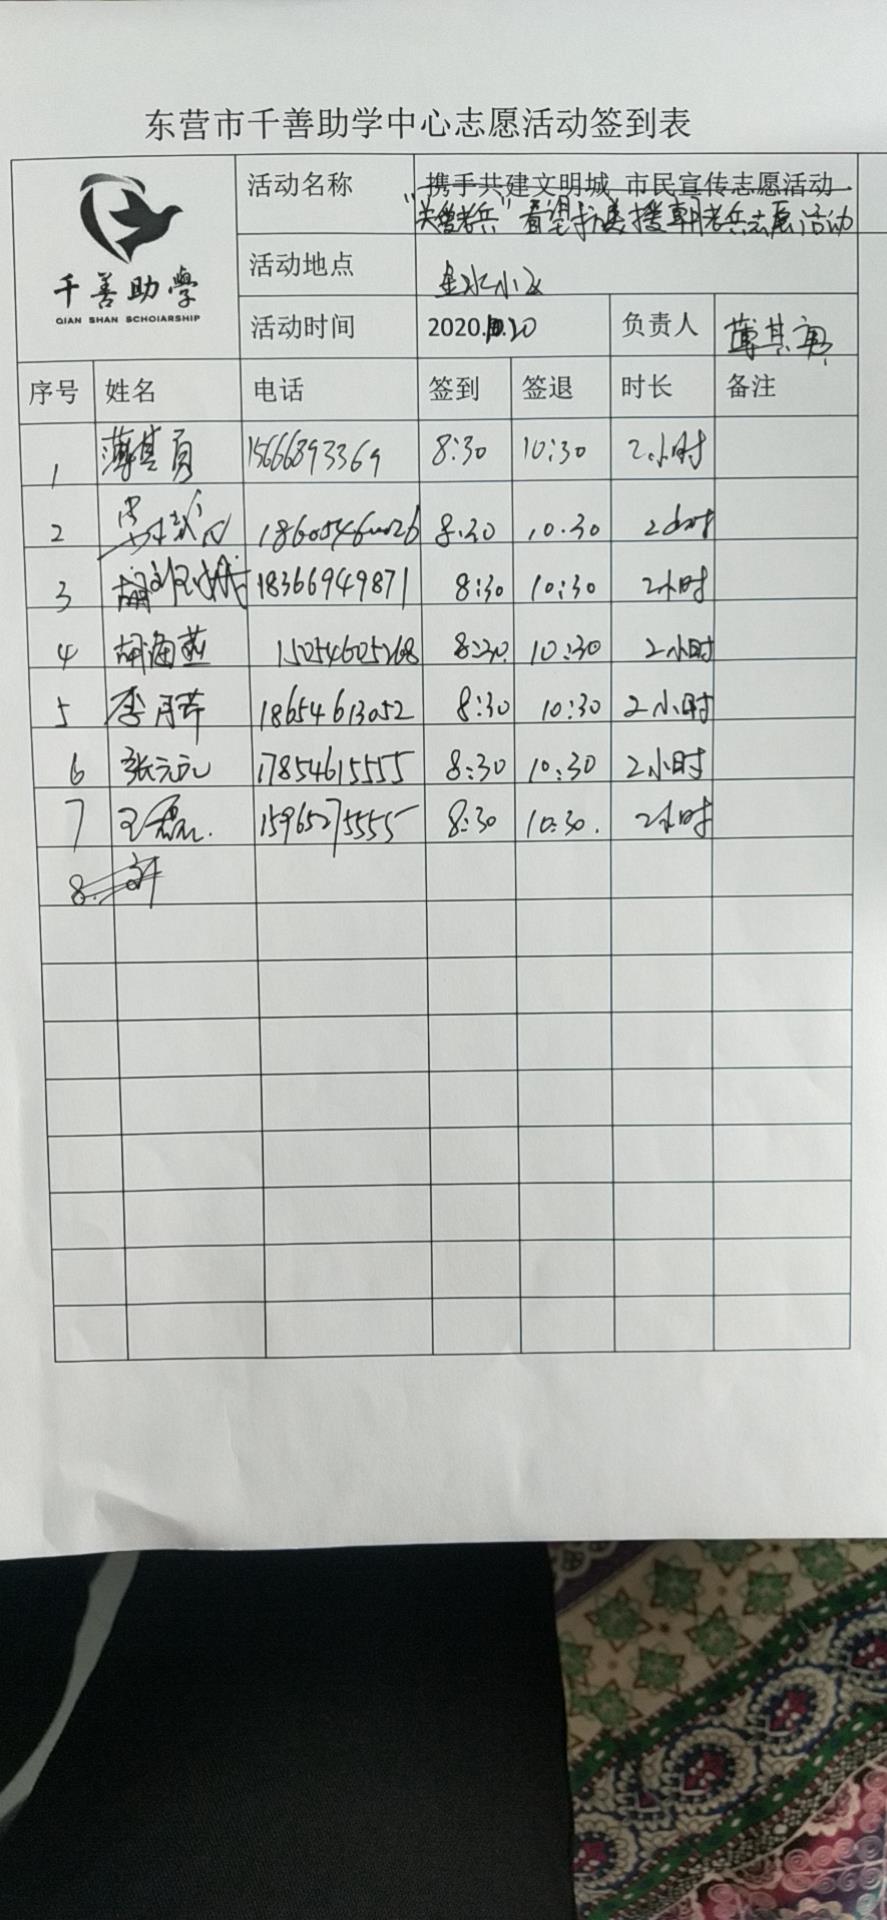 东营市千善助学中心志愿活动签到表
千善助學
QIAN SHAN SCHOIARSHIP
活动名称 携手共建文明城 市民宣传志愿活动
"关爱老兵"看望抗美援朝老兵志愿活动
活动地点 金水小区
活动时间 2020.10.20 负责人 薄其勇
序号 姓名 电话 签到 签退 时长 备注
1 薄其勇 15666893369 8:30 10:30 2小时
2 8:30 10:30 2小时
3 胡 18366949871 8:30 10:30 2小时
4 胡海燕 15054605268 8:30 10:30 2小时
5 李 18654613052 8:30 10:30 2小时
6 张元元 17854615555 8:30 10:30 2小时
7 王磊 15965275555 8:30 10:30. 2小时
8.